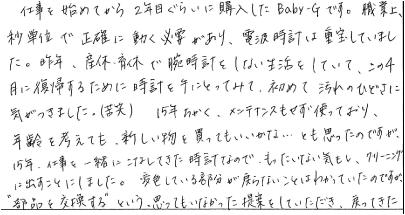 仕事を始めてから2年目ぐらいに購入したBaby-Gです。職業上、
秒単位で正確に動く必要があり、電波時計は重宝していまし
た。昨年、産休・育休で腕時計をしない生活をしていて、この4
月に復帰するために時計を手にとってみて、初めて汚れのひどさに
気がつきました。(苦笑) 15年ちかく、メンテナンスもせず使っており、
年齢を考えても、新しい物を買ってもいいかな…とも思ったのですが、
15年、仕事を一緒にこなしてきた時計なので、もったいない気もし、クリーニング
に出すことにしました。変色している部分が戻らないことはわかっていたのですが、
"部品を交換する"という、思ってもいなかった提案をしていただき、戻ってきた